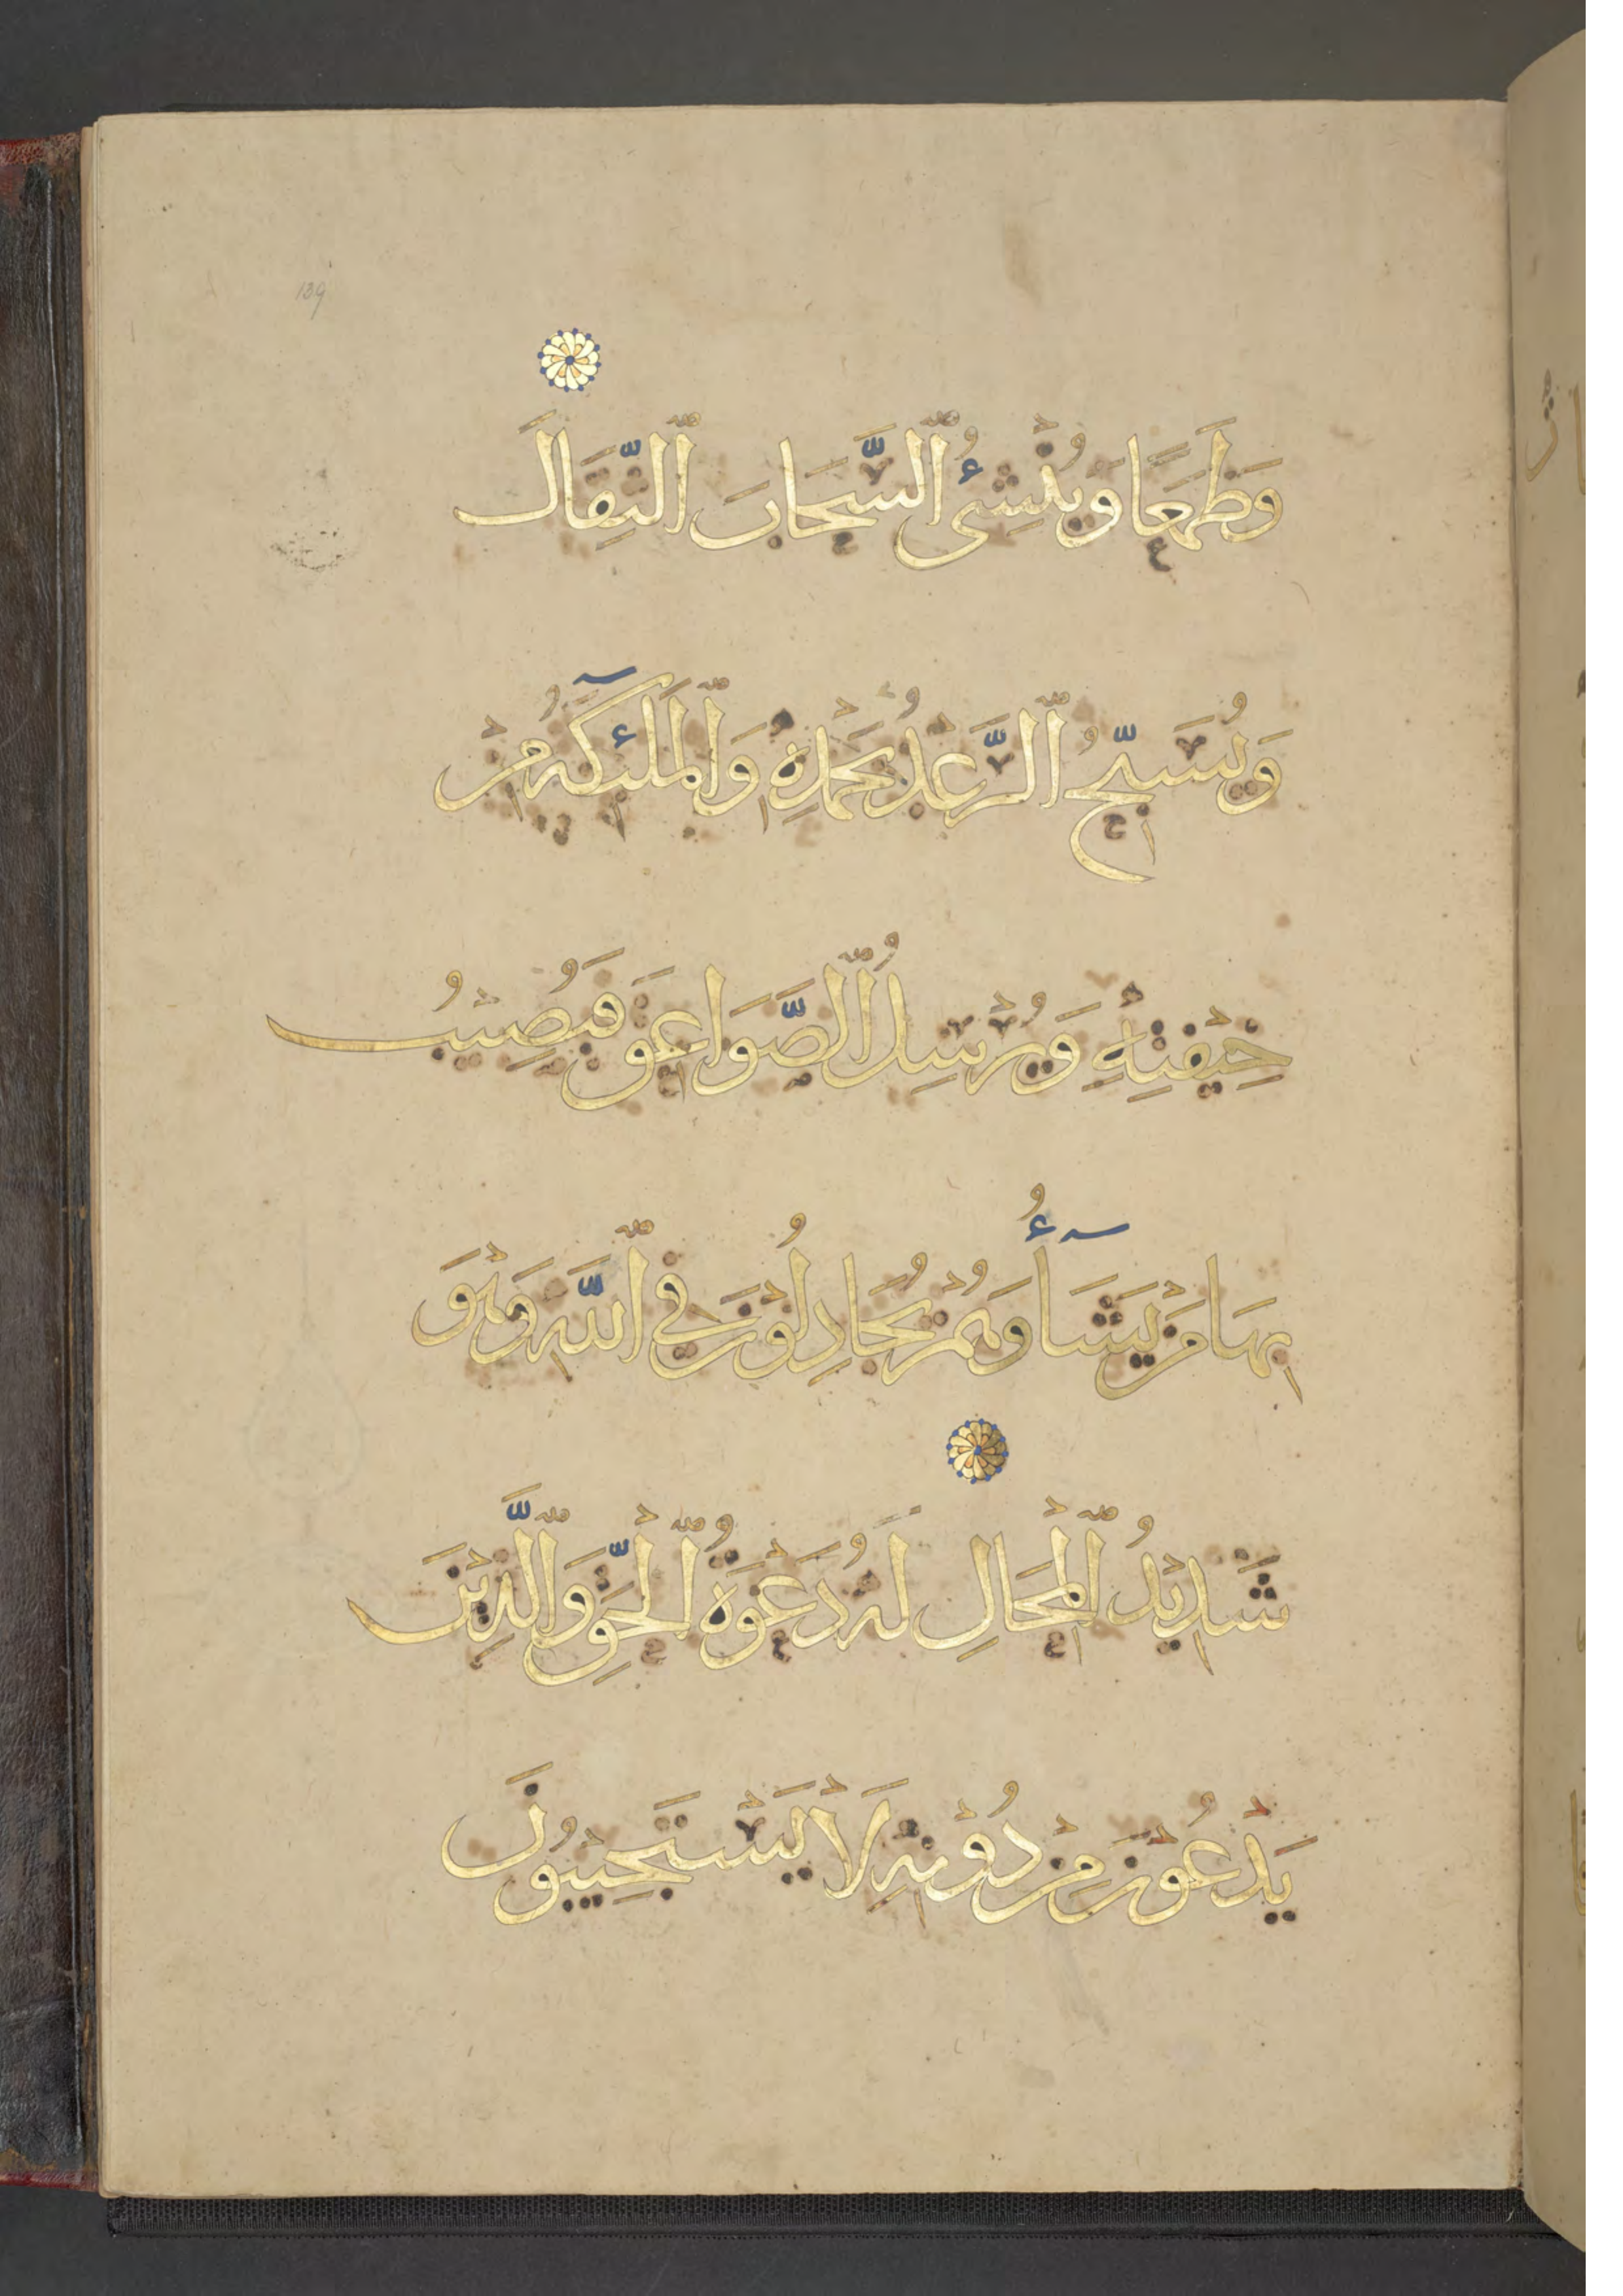 139
وَطَمَعًا وَيُنْشِئُ ٱلسَّحَابَ ٱلثِّقَالَ
وَيُسَبِّحُ ٱلرَّعْدُ بِحَمْدِهِ وَٱلْمَلَٰٓئِكَةُ مِنْ
خِيْفَتِهِ وَيُرْسِلُ ٱلصَّوَاعِقَ فَيُصِيْبُ
بِهَا مَنْ يَشَآءُ وَهُمْ يُجَادِلُوْنَ فِي ٱللَّهِ وَهْوَ
شَدِيْدُ ٱلْمِحَالِ لَهُ دَعْوَةُ ٱلْحَقِّ وَٱلَّذِيْنَ
يَدْعُوْنَ مِنْ دُوْنِهِ لَا يَسْتَجِيْبُوْنَ